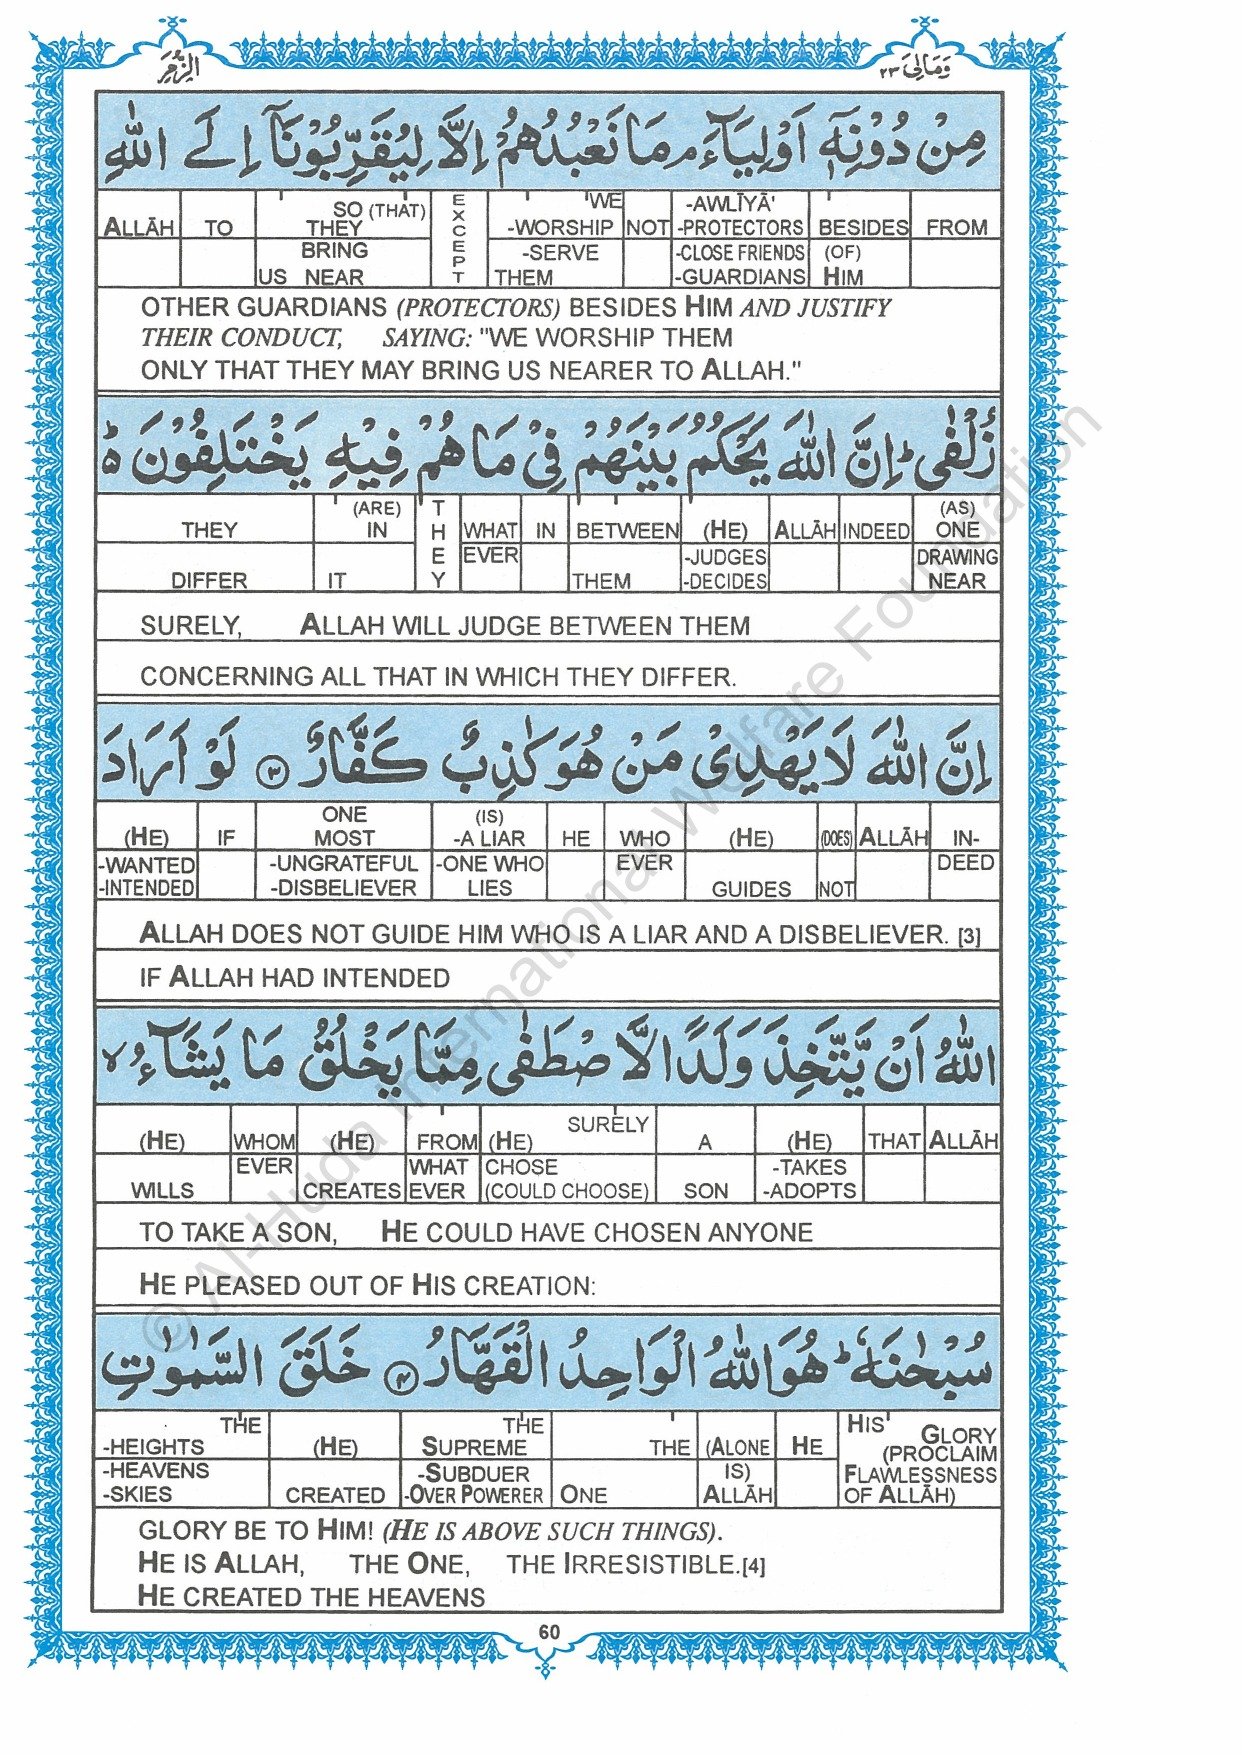 الزمر
ومالى ٢٣
مِنْ دُوْنِهٖٓ اَوْلِيَآءَ ۘ مَا نَعْبُدُهُمْ اِلَّا لِيُقَرِّبُوْنَآ اِلَى اللّٰهِ
'WE SO (THAT) -AWLĪYĀ'
ALLĀH TO THEY EXCEPT -WORSHIP NOT -PROTECTORS BESIDES FROM
BRING -SERVE -CLOSE FRIENDS (OF)
US NEAR THEM -GUARDIANS HIM
OTHER GUARDIANS (PROTECTORS) BESIDES HIM AND JUSTIFY
THEIR CONDUCT, SAYING: "WE WORSHIP THEM
ONLY THAT THEY MAY BRING US NEARER TO ALLAH."
زُلْفٰى ؕ اِنَّ اللّٰهَ يَحْكُمُ بَيْنَهُمْ فِيْ مَا هُمْ فِيْهِ يَخْتَلِفُوْنَ ؕ
(ARE) (AS)
THEY IN THEY WHAT IN BETWEEN (HE) ALLĀH INDEED ONE
EVER -JUDGES DRAWING
DIFFER IT THEM -DECIDES NEAR
SURELY, ALLAH WILL JUDGE BETWEEN THEM
CONCERNING ALL THAT IN WHICH THEY DIFFER.
اِنَّ اللّٰهَ لَا يَهْدِيْ مَنْ هُوَ كٰذِبٌ كَفَّارٌ ۝٣ لَوْ اَرَادَ
ONE (IS)
(HE) IF MOST -A LIAR HE WHO (HE) (DOES) ALLĀH IN-
-WANTED -UNGRATEFUL -ONE WHO EVER DEED
-INTENDED -DISBELIEVER LIES GUIDES NOT
ALLAH DOES NOT GUIDE HIM WHO IS A LIAR AND A DISBELIEVER. [3]
IF ALLAH HAD INTENDED
اللّٰهُ اَنْ يَّتَّخِذَ وَلَدًا لَّاصْطَفٰى مِمَّا يَخْلُقُ مَا يَشَآءُ ۙ
SURELY
(HE) WHOM (HE) FROM (HE) A (HE) THAT ALLĀH
EVER WHAT CHOSE -TAKES
WILLS CREATES EVER (COULD CHOOSE) SON -ADOPTS
TO TAKE A SON, HE COULD HAVE CHOSEN ANYONE
HE PLEASED OUT OF HIS CREATION:
سُبْحٰنَهٗ ؕ هُوَ اللّٰهُ الْوَاحِدُ الْقَهَّارُ ۝٤ خَلَقَ السَّمٰوٰتِ
THE THE HIS' GLORY
-HEIGHTS (HE) SUPREME THE (ALONE HE (PROCLAIM
-HEAVENS -SUBDUER IS) FLAWLESSNESS
-SKIES CREATED -OVER POWERER ONE ALLĀH OF ALLĀH)
GLORY BE TO HIM! (HE IS ABOVE SUCH THINGS).
HE IS ALLAH, THE ONE, THE IRRESISTIBLE.[4]
HE CREATED THE HEAVENS
60
© Al-Huda International Welfare Foundation